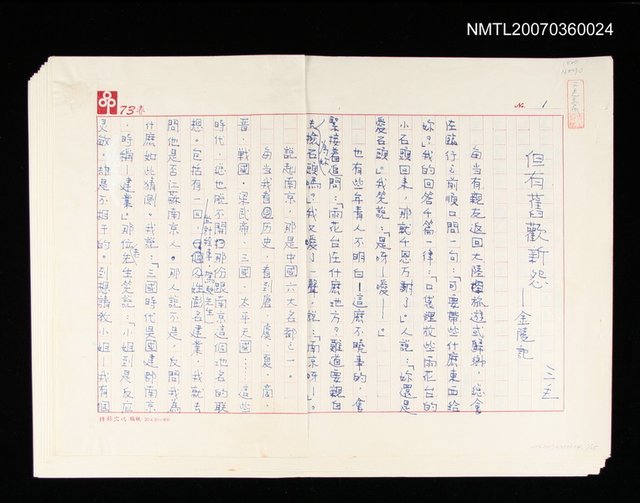 NMTL20070360024
73春
No. 1
但有舊歡新怨——金陵記
三三
每當有親友返回大陸旅遊或歸鄉，總會
在臨行之前順口問一句：「可要帶些什麼東西給
妳？」我的回答千篇一律：「口袋裡放些雨花台的
小石頭回來，那就千恩萬謝了。」人說：「妳還是
愛石頭。」我笑說：「是呀——噯——」
也有些年青人不明白——這麼不曉事的，會
緊接着追問：「雨花台在什麼地方？難道要親自
為妳
去撿石頭嗎？」我又噯了一聲，說：「南京呀——。」
說起南京，那是中國六大名都之一。
每當我看歷史，看到唐、虞、夏、商、
晉、戰國、梁武帝、三國、太平天國……這些
時代，也脫不開那份跟南京這個地名的聯
想。包括有一回，
名建業，我就去
問他是否江蘇南京人。那人說不是，反問我為
什麼如此猜倒。我說：「三國時代吳國建都南京
時稱『建業』。」那位先生笑說：「小姐到是反應
靈敏，卻是不相干的。到想請教小姐，我有個